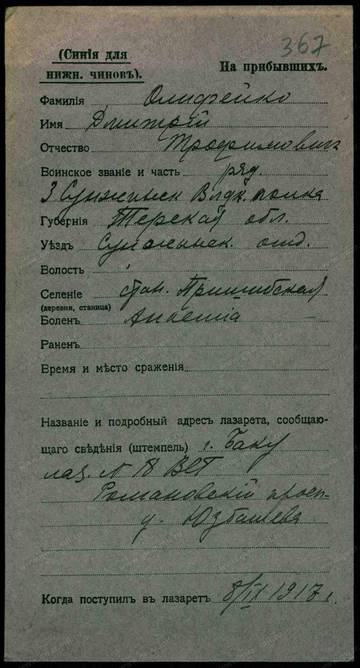 367
(Синія для
нижн. чиновъ).
На прибывшихъ.
Фамилія Олифейко
Имя Дмитрій
Отчество Трофимович
Воинское званіе и часть ряд.
3 Сунженск Влдк. полка
Губернія Терская обл.
Уѣздъ Сунженск. отд.
Волость
Селеніе стан. Пришибская
(деревня, станица)
Боленъ
Раненъ
Время и мѣсто сраженія
Названіе и подробный адресъ лазарета, сообщаю-
щаго свѣдѣнія (штемпель) г. Баку
лаз. № 18 ВСГ
Романовскій просп-
д. Юзбашева
Когда поступилъ въ лазаретъ 8/IX 1917 г.